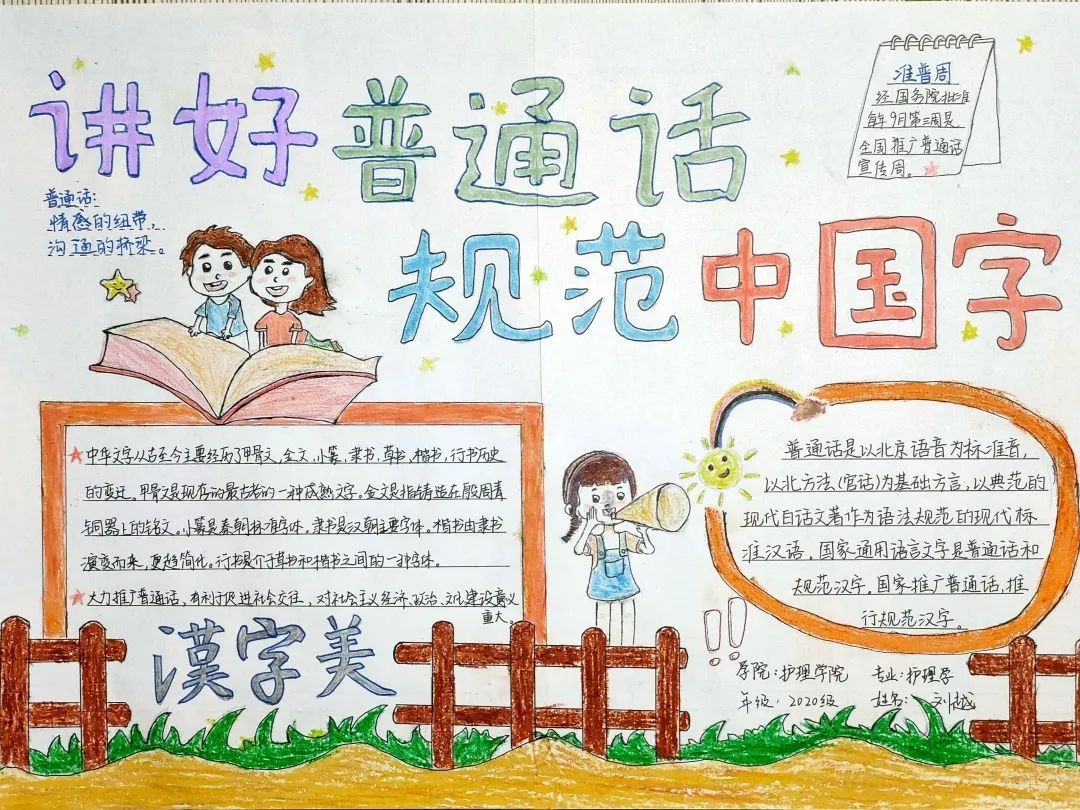 讲好普通话
规范中国字
准普周
经国务院批准
每年9月第三周是
全国推广普通话
宣传周。
普通话:
情感的纽带,
沟通的桥梁。
中华文字从古至今主要经历了甲骨文,金文,小篆,隶书,草书,楷书,行书历史
的变迁。甲骨文是现存的最古老的一种成熟文字。金文是指铸造在殷周青
铜器上的铭文。小篆是秦朝标准字体。隶书是汉朝主要字体。楷书由隶书
演变而来,更趋简化。行书是介于草书和楷书之间的一种字体。
大力推广普通话,有利于促进社会交往,对社会主义经济、政治、文化建设意义
重大。
漢字美
普通话是以北京语音为标准音,
以北方法(官话)为基础方言,以典范的
现代白话文著作为语法规范的现代标
准汉语。国家通用语言文字是普通话和
规范汉字。国家推广普通话,推
行规范汉字。
!!
学院:护理学院 专业:护理学
年级:2020级 姓名:刘越